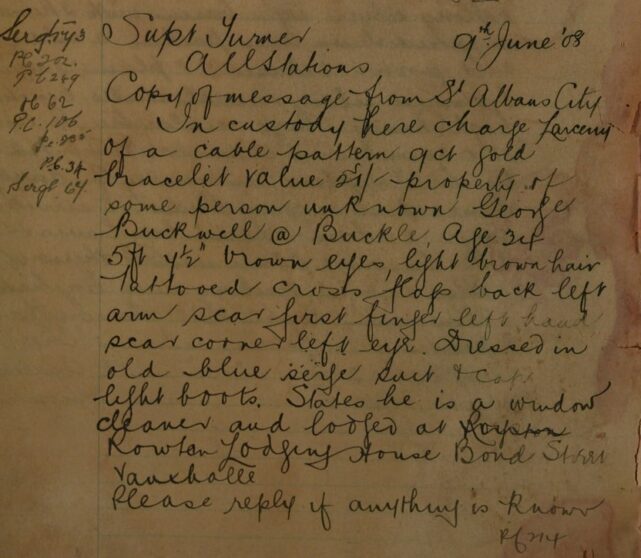 Supt Turner 9th June '08
All Stations
Copy of message from St Albans City
In custody here charge Larceny
of a cable pattern 9ct gold
bracelet value property of
some person unknown George
Buckwell @ Buckle, Age 34
5ft 7½" brown eyes, light brown hair
Tattooed cross flags back left
arm scar first finger left hand
scar corner left eye. Dressed in
old blue serge suit & cap
light boots. States he is a window
cleaner and lodged at
Rowton Lodging House Bond Street
Vauxhalle
Please reply if anything is known
PC 202.
PC 249
62
P.C. 106
P.C. 34
Sergt. 64